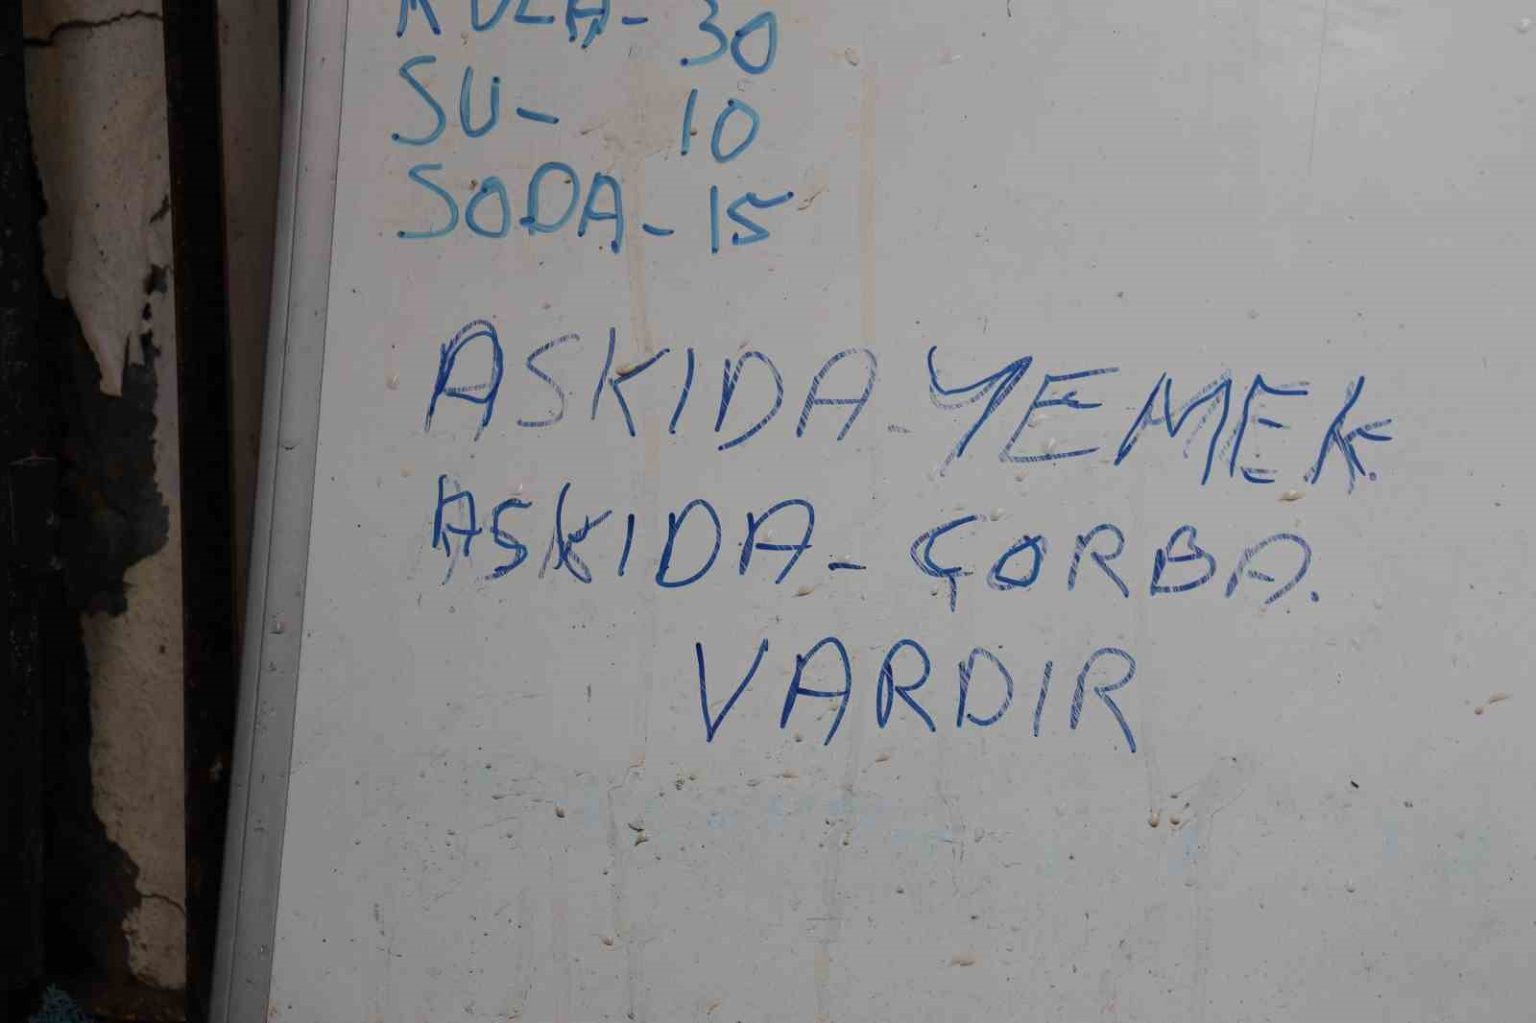 KOLA- 30
SU- 10
SODA- 15
ASKIDA-YEMEK.
ASKIDA- ÇORBA.
VARDIR